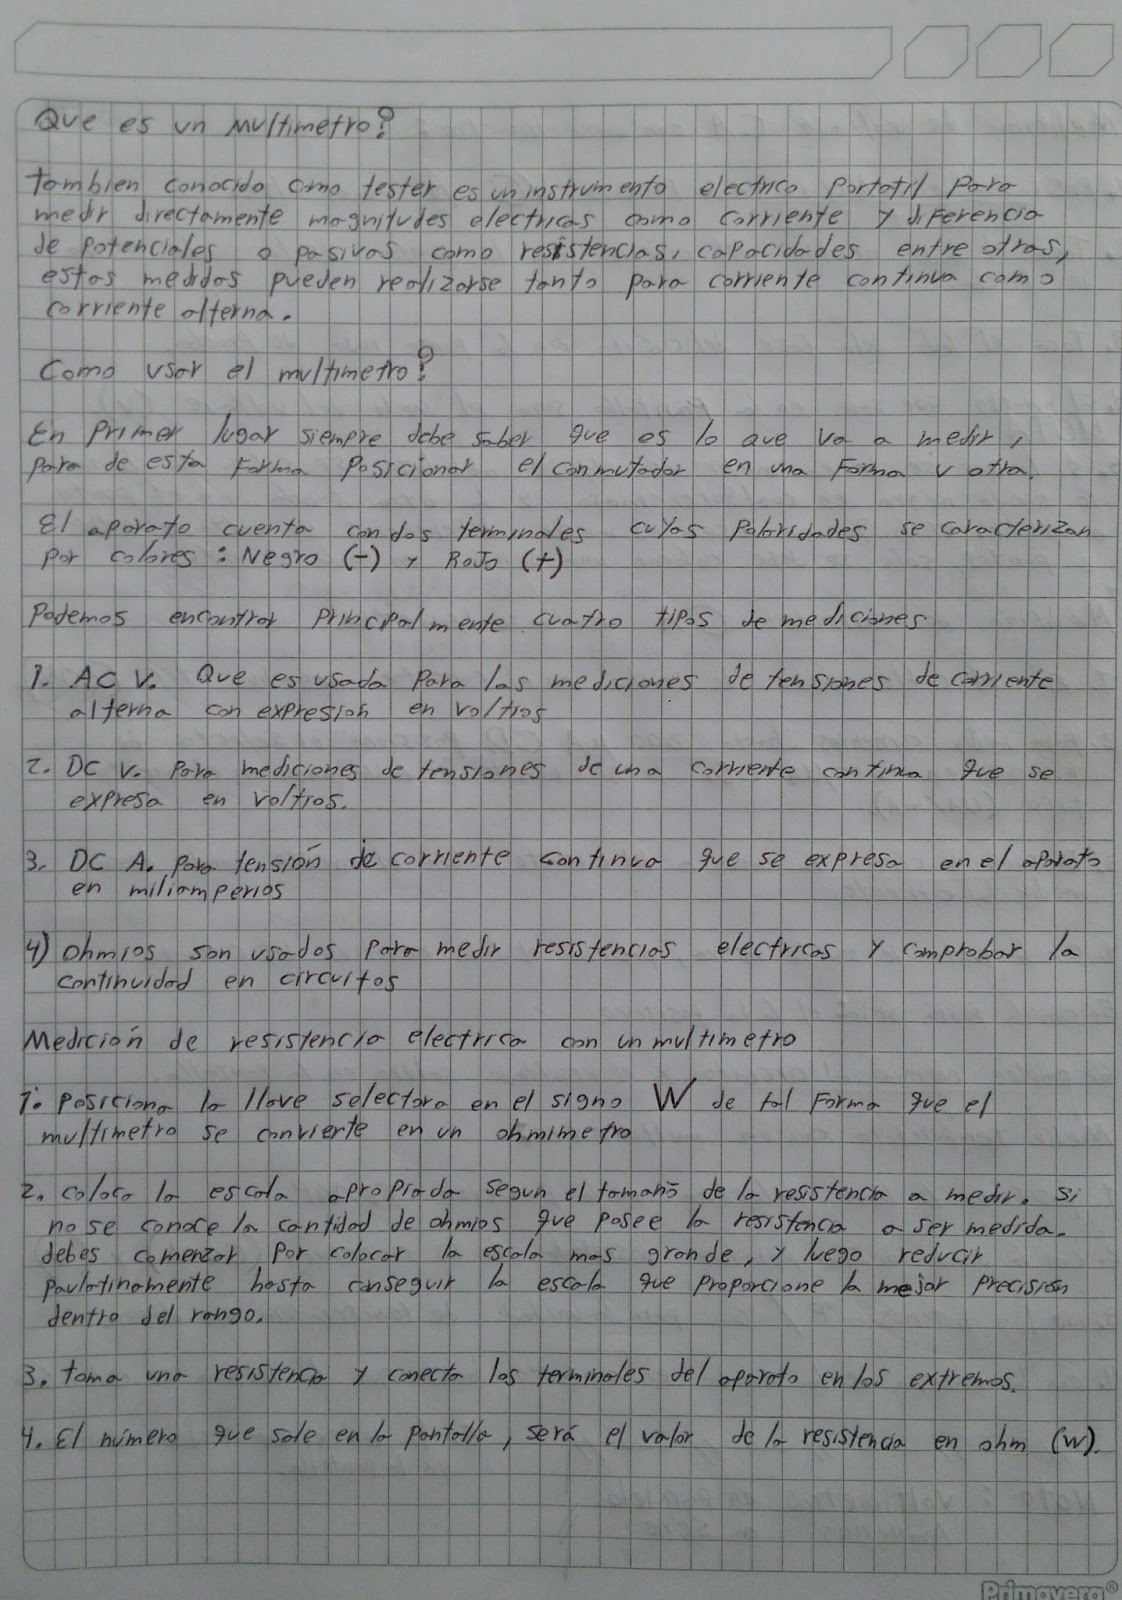 Que es un multimetro?
tambien conocido como tester es un instrumento electrico portatil para
medir directamente magnitudes electricas como corriente y diferencia
de potenciales o pasivas como resistencias, capacidades entre otras,
estas medidas pueden realizarse tanto para corriente continua como
corriente alterna.
Como usar el multimetro?
En primer lugar siempre debe saber que es lo que va a medir,
para de esta forma posicionar el conmutador en una forma u otra.
El aparato cuenta con dos terminales cuyas polaridades se caracterizan
por colores: Negro (-) y Rojo (+)
Podemos encontrar principalmente cuatro tipos de mediciones
1. AC V. Que es usada para las mediciones de tensiones de corriente
alterna con expresion en voltios
2. DC V. Para mediciones de tensiones de una corriente continua que se
expresa en voltios.
3. DC A. para tensión de corriente continua que se expresa en el aparato
en miliamperios
4) ohmios son usados para medir resistencias electricas y comprobar la
continuidad en circuitos
Medición de resistencia electrica con un multimetro
1. posiciona la llave selectora en el signo W de tal forma que el
multimetro se convierte en un ohmimetro
2. coloca la escala apropiada segun el tamaño de la resistencia a medir. si
no se conoce la cantidad de ohmios que posee la resistencia a ser medida.
debes comenzar por colocar la escala mas grande, y luego reducir
paulatinamente hasta conseguir la escala que proporcione la mejor precisión
dentro del rango.
3. toma una resistencia y conecta los terminales del aparato en los extremos.
4. El número que sale en la pantalla, será el valor de la resistencia en ohm (w).
Primavera®